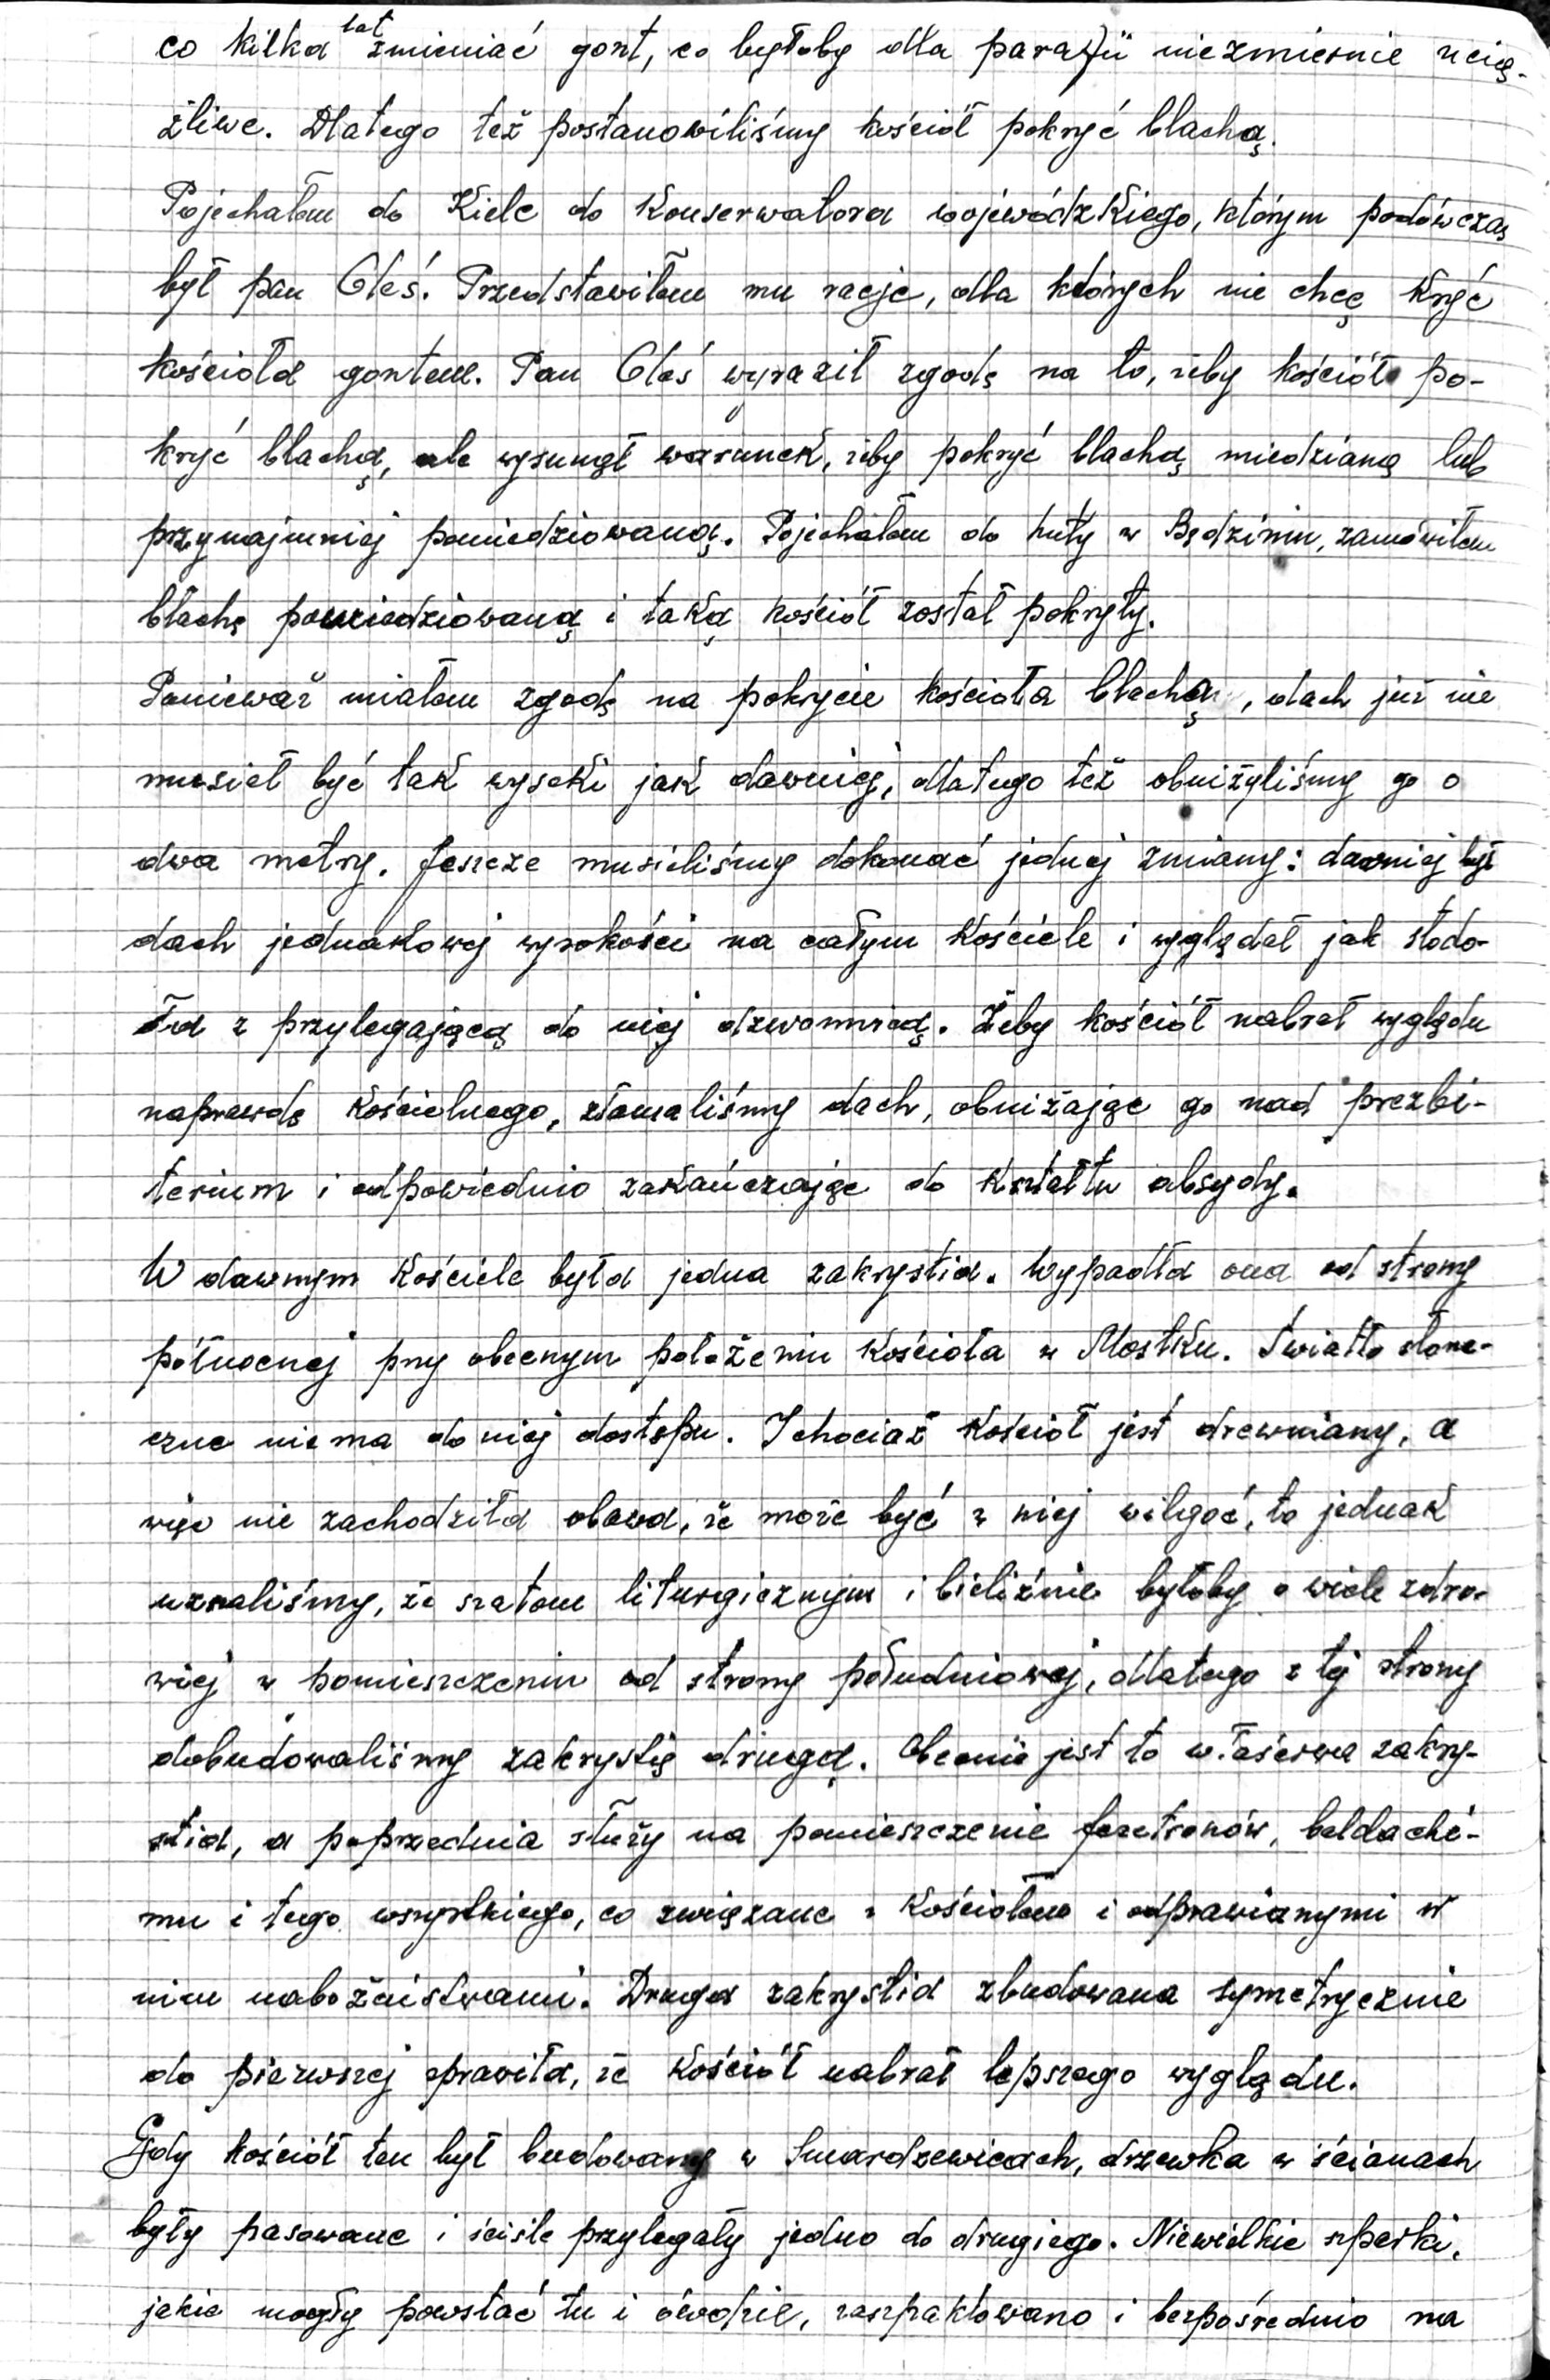 co kilka lat zmieniać gont, co byłoby dla parafii niezmiernie ucią-
żliwe. Dlatego też postanowiliśmy kościół pokryć blachą.
Pojechałem do Kielc do Konserwatora wojewódzkiego, którym podówczas
był pan Oleś. Przedstawiłem mu racje, dla których nie chcę kryć
kościoła gontem. Pan Oleś wyraził zgodę na to, żeby kościół po-
kryć blachą, ale wysunął warunek, żeby pokryć blachą miedzianą lub
przynajmniej pomiedziowaną. Pojechałem do huty w Będzinie, zamówiłem
blachę pomiedziowaną i taką kościół został pokryty.
Ponieważ miałem zgodę na pokrycie kościoła blachą, dach już nie
musiał być tak wysoki jak dawniej, dlatego też obniżyliśmy go o
dwa metry. Jeszcze musieliśmy dokonać jednej zmiany: dawniej był
dach jednakowej wysokości na całym Kościele i wyglądał jak stodo-
ła z przylegającą do niej dzwonnicą. Żeby kościół nabrał wyglądu
naprawdę Kościelnego, złamaliśmy dach, obniżając go nad prezbi-
terium i odpowiednio zakańczając do kształtu absydy.
W dawnym Kościele była jedna zakrystia. Wypadła ona od strony
północnej przy obecnym położeniu Kościoła w Mostku. Światło słone-
czne nie ma do niej dostępu. I chociaż Kościół jest drewniany, a
więc nie zachodziła obawa, że może być w niej wilgoć, to jednak
uznaliśmy, że szatom liturgicznym i bieliźnie byłoby o wiele zdro-
wiej w pomieszczeniu od strony południowej, dlatego z tej strony
dobudowaliśmy zakrystię drugą. Obecnie jest to właściwa zakry-
stia, a poprzednia służy na pomieszczenie feretronów, baldachi-
mu i tego wszystkiego, co związane z Kościołem i odprawianymi w
nim nabożeństwami. Druga zakrystia zbudowana symetrycznie
do pierwszej sprawiła, że Kościół nabrał lepszego wyglądu.
Gdy kościół ten był budowany w Smardzewicach, drzewka w ścianach
były pasowane i ściśle przylegały jedno do drugiego. Niewielkie szparki,
jakie mogły powstać tu i ówdzie, zaszpaktowano i bezpośrednio na